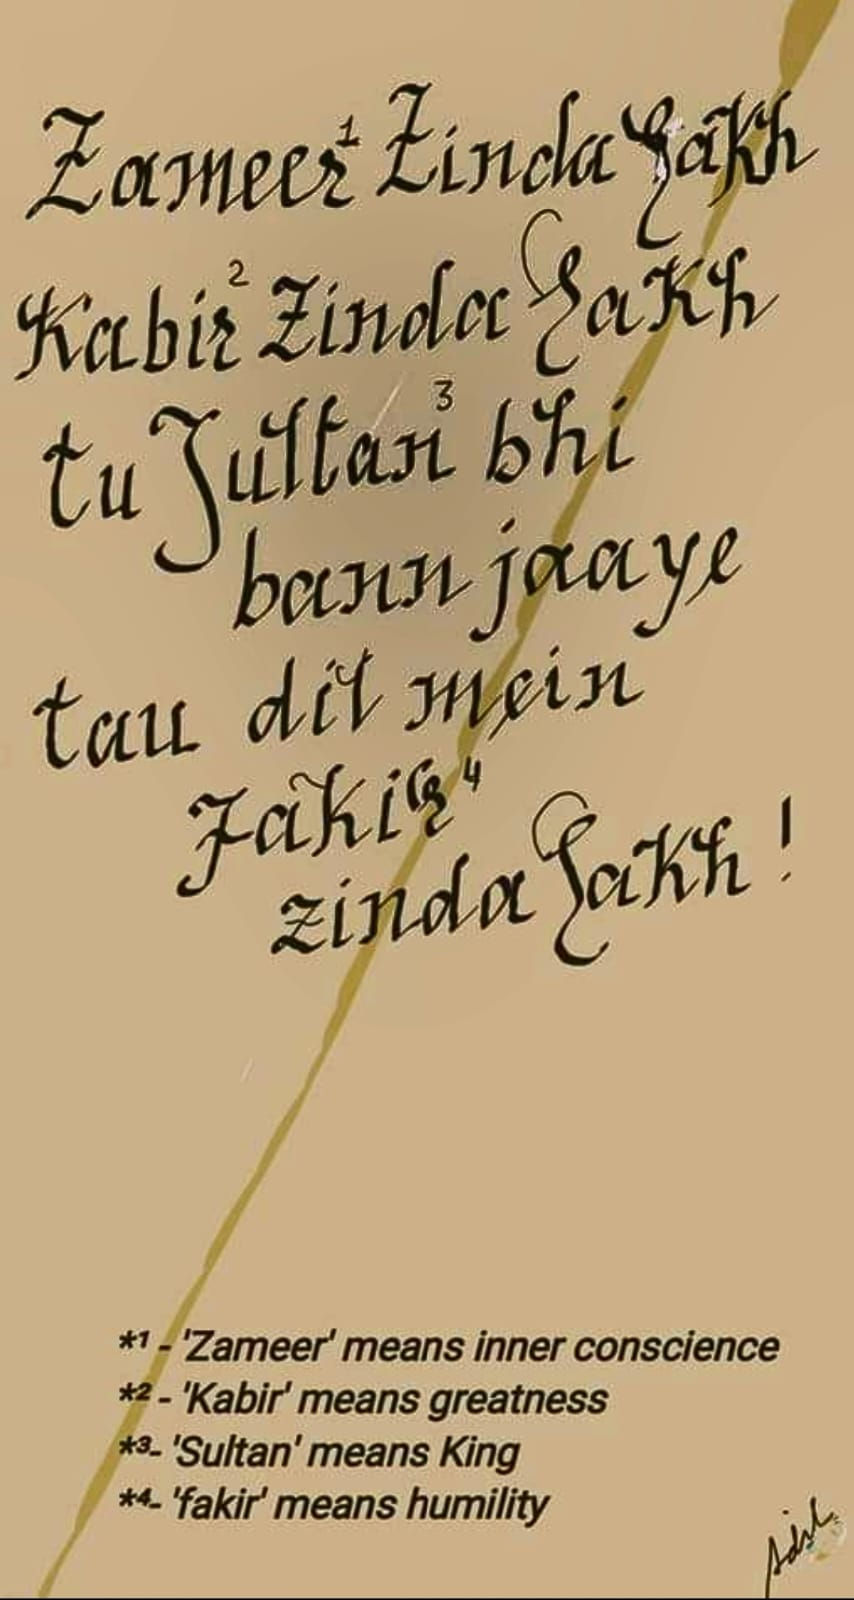 Zameer¹ Zinda Rakh
Kabir² Zinda Rakh
tu Sultan³ bhi
bann jaaye
tau dil mein
fakir⁴
zinda Rakh !
*¹ - 'Zameer' means inner conscience
*² - 'Kabir' means greatness
*³- 'Sultan' means King
*⁴- 'fakir' means humility